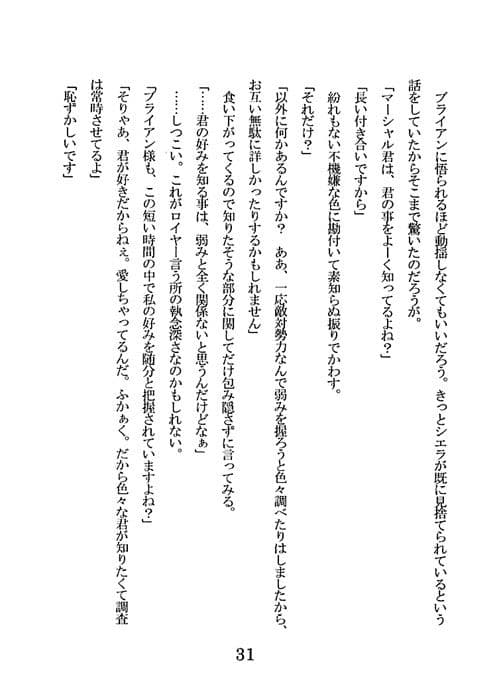 ブライアンに悟られるほど動揺しなくてもいいだろう。きっとシエラが既に見捨てられているという
話をしていたからそこまで驚いたのだろうが。
「マーシャル君は、君の事をよーく知ってるよね？」
「長い付き合いですから」
紛れもない不機嫌な色に勘付いて素知らぬ振りでかわす。
「それだけ？」
「以外に何かあるんですか？　ああ、一応敵対勢力なんで弱みを握ろうと色々調べたりはしましたから、
お互い無駄に詳しかったりするかもしれません」
食い下がってくるので知りたそうな部分に関してだけ包み隠さずに言ってみる。
「……君の好みを知る事は、弱みと全く関係ないと思うんだけどなぁ」
……しつこい。これがロイヤー言う所の執念深さなのかもしれない。
「ブライアン様も、この短い時間の中で私の好みを随分と把握されていますよね？」
「そりゃあ、君が好きだからねぇ。愛しちゃってるんだ。ふかぁく。だから色々な君が知りたくて調査
は常時させてるよ」
「恥ずかしいです」
31